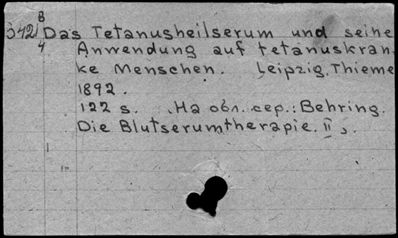 B
342 Das Tetanusheilserum und seine
4 Anwendung auf tetanuskran-
ke Menschen. Leipzig, Thieme
1892.
122 s. На обл. сер.: Behring.
Die Blutserumtherapie. II.